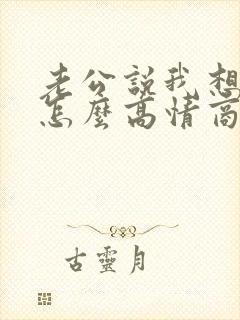 老公說我想
怎麼高情商
古靈月